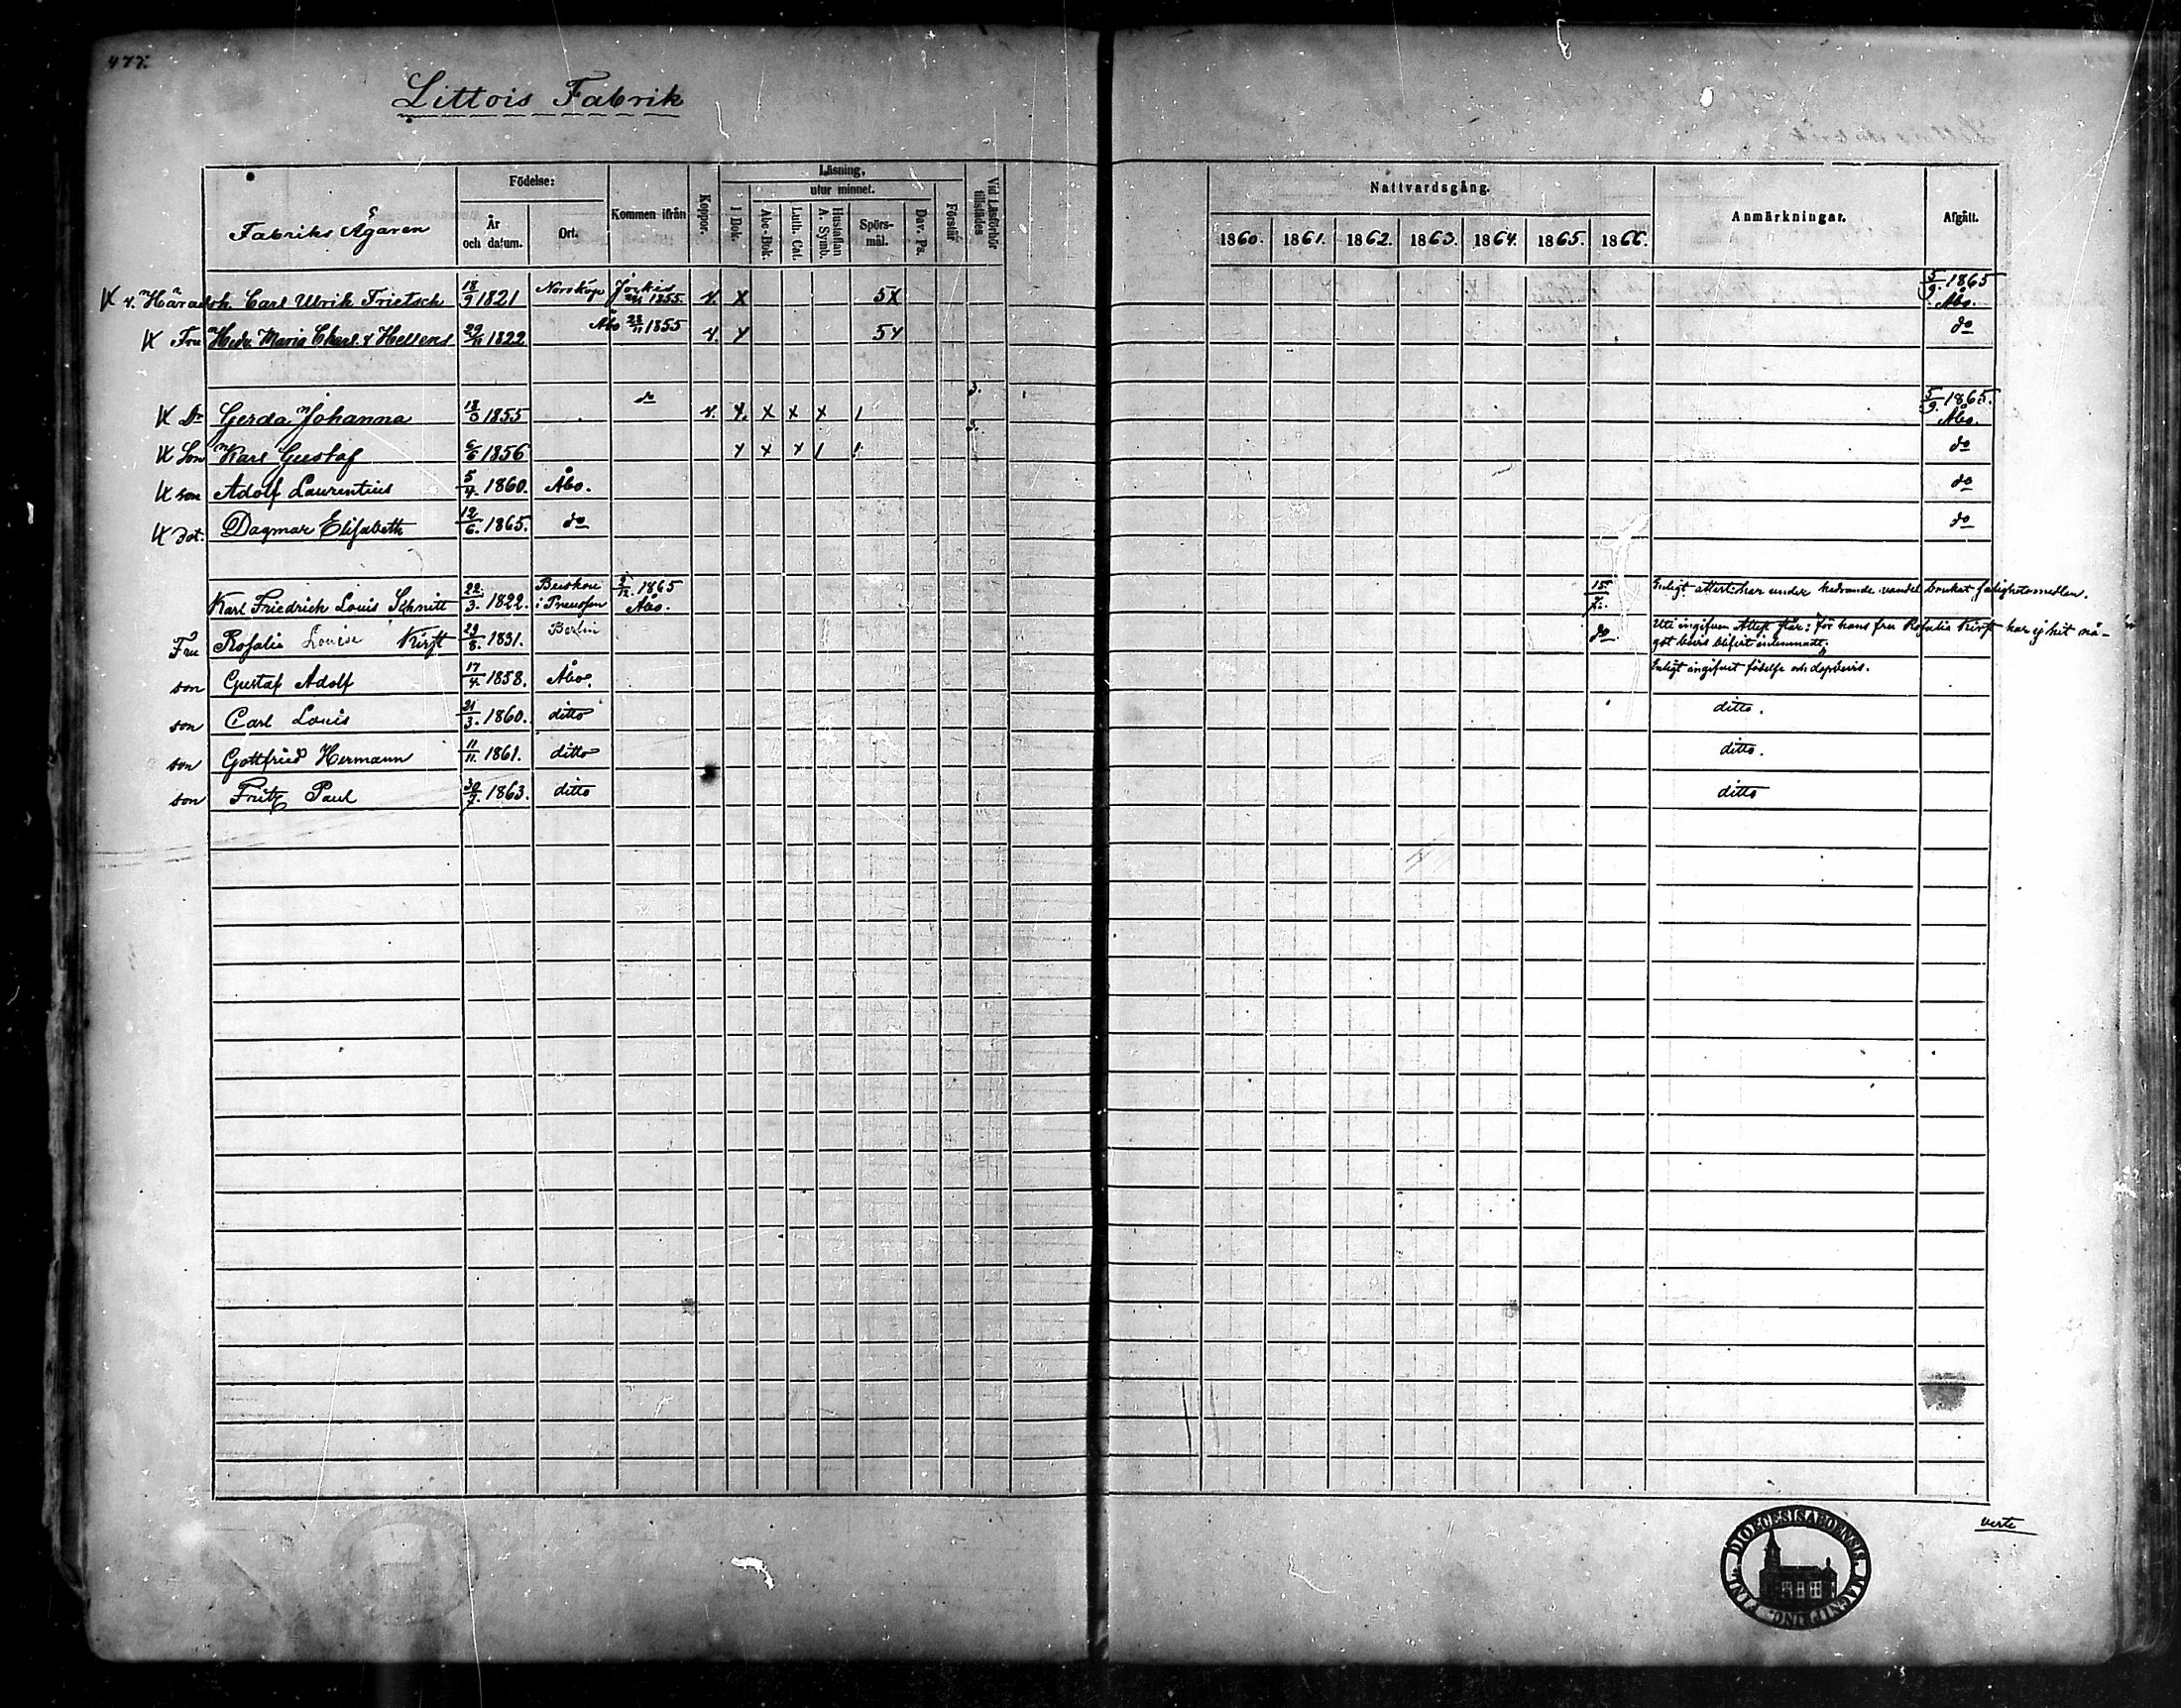 477.
Littois Fabrik
Fabriks Ägaren
Födelse:
År och datum.
Ort.
Kommen ifrån
Koppor.
Läsning,
I Bok.
utur minnet.
Abc-Bok.
Luth. Cat.
Hustaflan A. Symb.
Spörs-mål.
Dav. Ps.
Förstår
Vid Läsförhör tillstädes
Nattvardsgång.
1860. 1861. 1862. 1863. 1864. 1865. 1866.
Anmärkningar.
Afgått.
Häradsh. Carl Ulrik Frietsch 18/9 1821 Norrköp Jockis 1855. X 5X 5/9 1865 Åbo.
Fru Hedv. Maria Charl. Hellens 29/11 1822 Åbo 1855 5 do
Dr Gerda Johanna 1855 do X X X 3. 5/9. 1865. Åbo.
Son Karl Gustaf 6/6 1856 3. do
son Adolf Laurentius 5/4. 1860. Åbo. do
dot. Dagmar Elisabeth 12/6. 1865. do do
Karl Friedrich Louis Schmitt 22/3. 1822. i Preussen 2/12. 1865 Åbo. Enligt attest: har under hedrande vandel brukat salighetsmedlen.
Fru Rosalie Louise Kirst 23/8. 1831. Berlin do Uti ingifven Attest står: för hans fru Rosalie Kirst har ej hit nå-
got bevis blifvit inlemnadt.
son Gustaf Adolf 17/4. 1858. Åbo. Enligt ingifvet födelse och dopbevis.
son Carl Louis 21/3. 1860. ditto ditto.
son Gottfried Hermann 11/11. 1861. ditto ditto.
son Fritz Paul 30/7. 1863. ditto ditto
verte
DIOECESIS ABOENSIS.